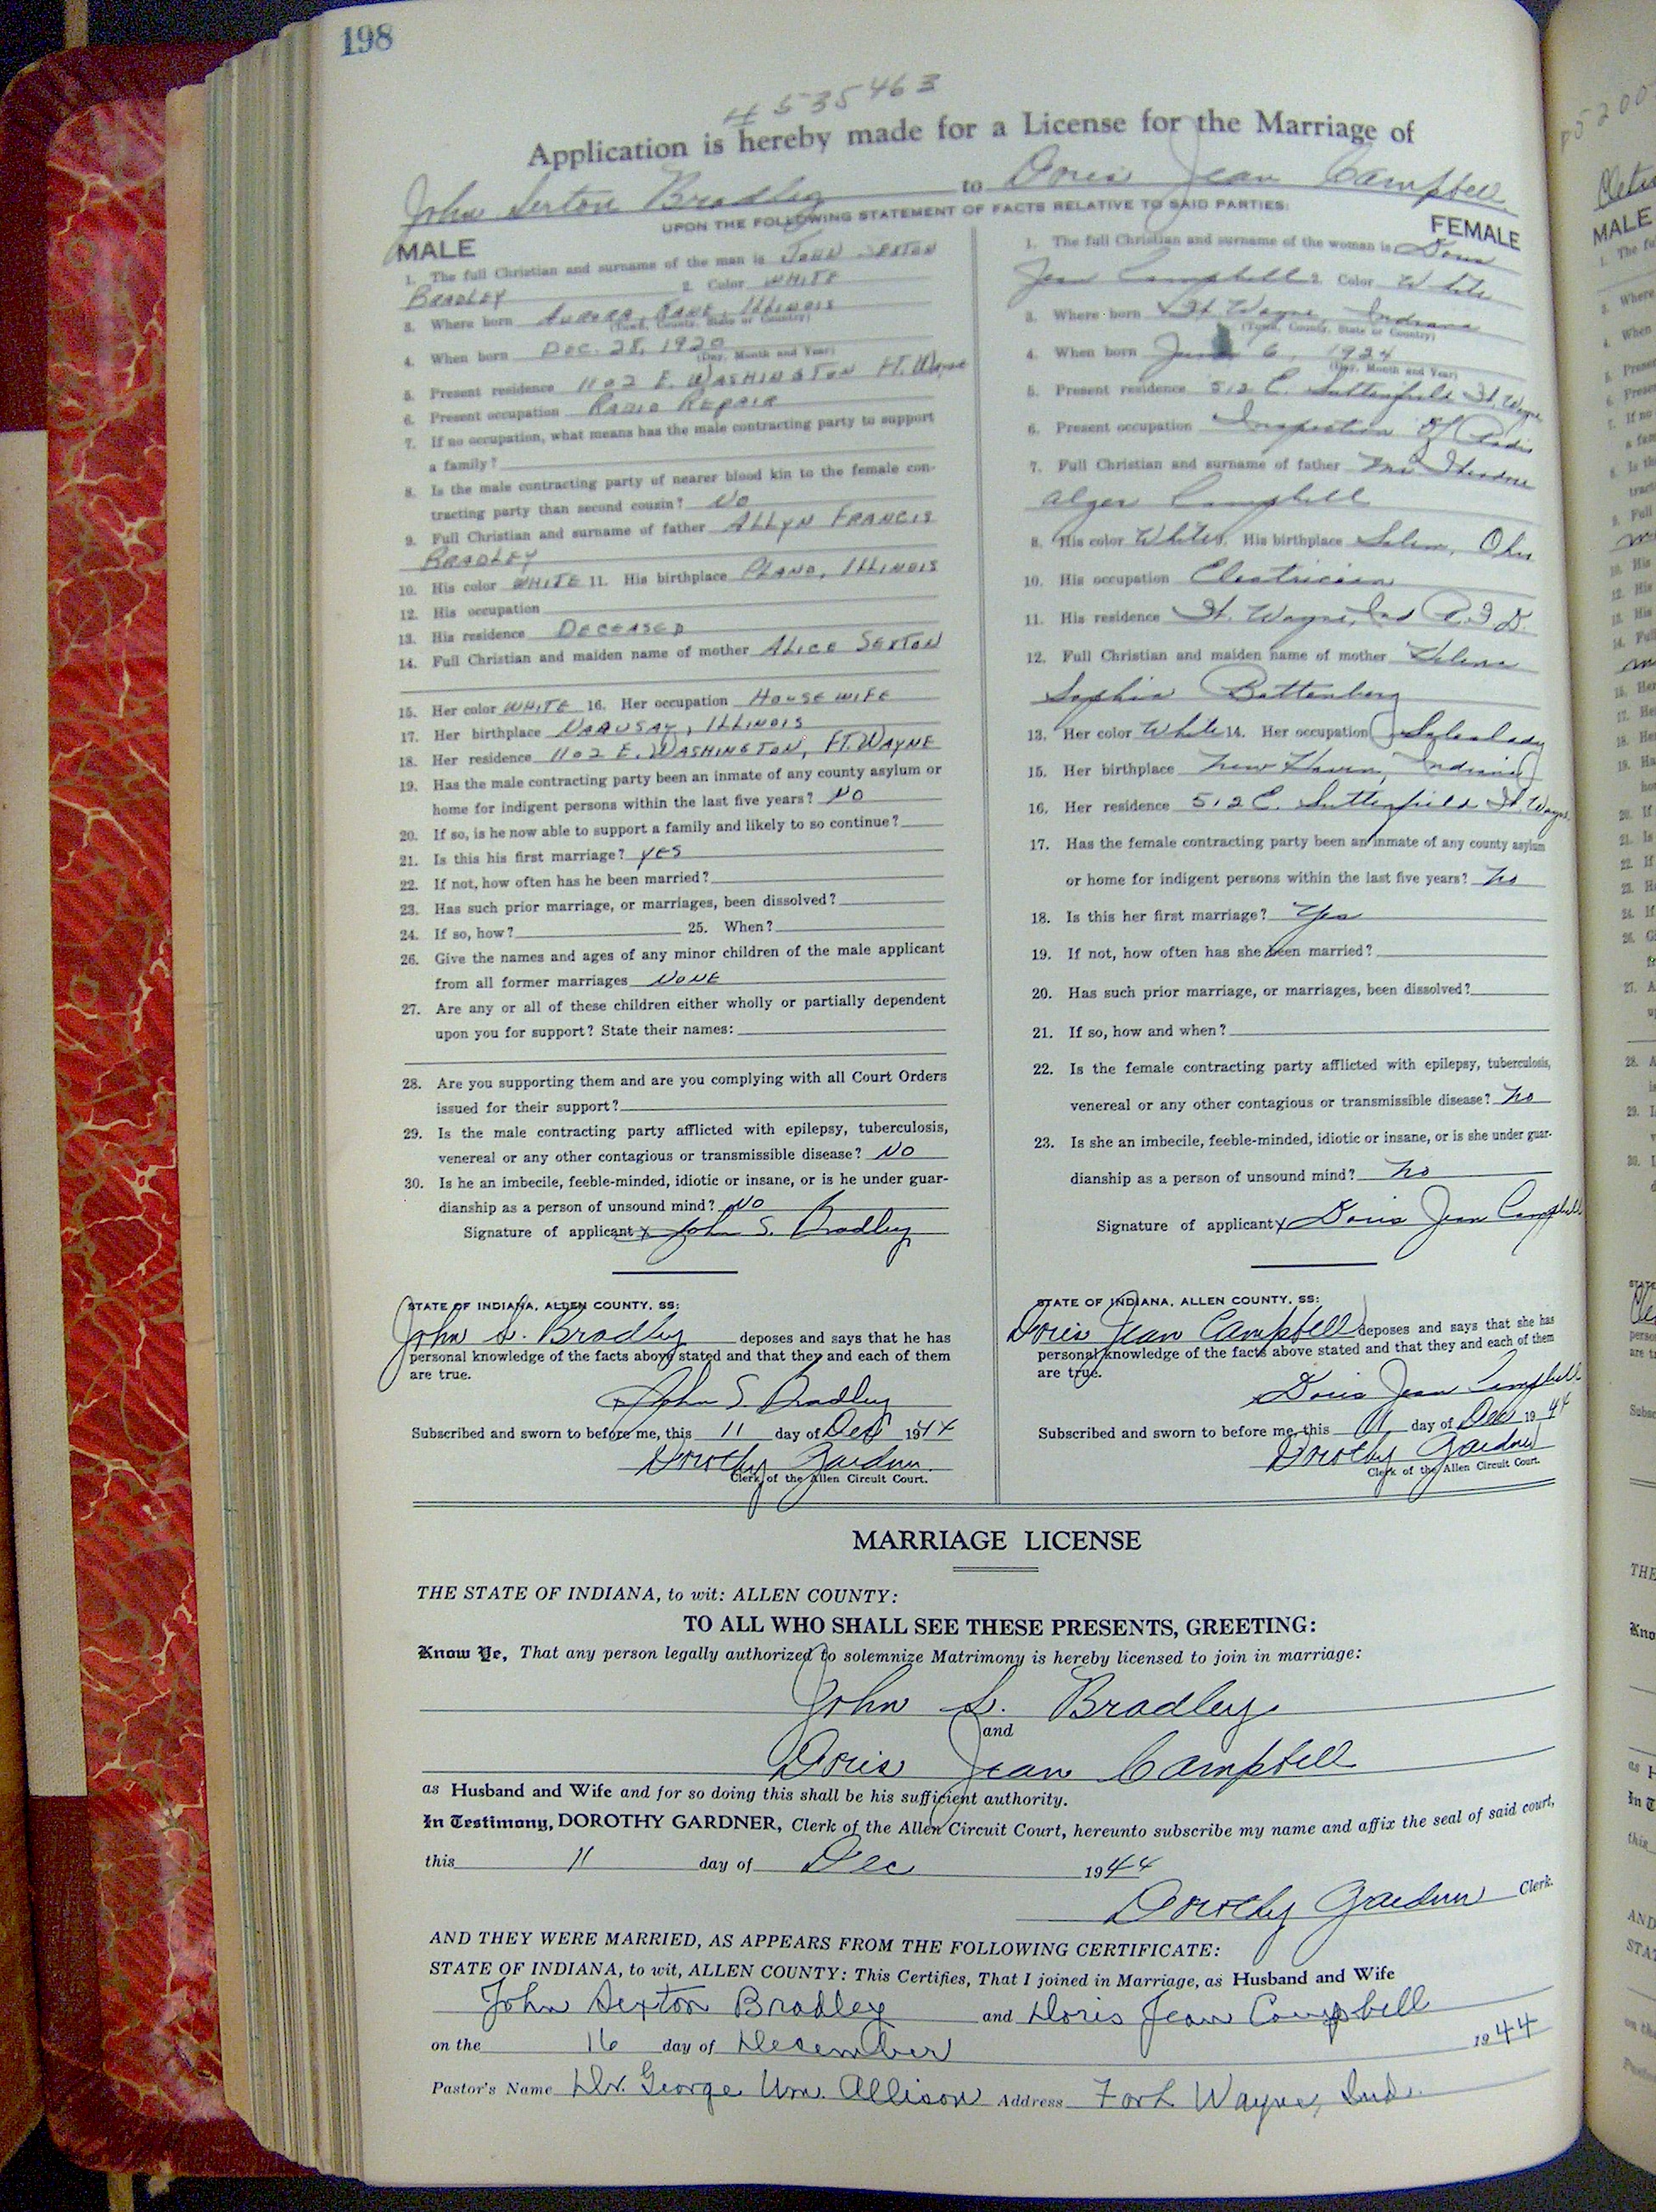 198
# 535463
Application is hereby made for a License for the Marriage of
John Sexton Bradley to Doris Jean Campbell
UPON THE FOLLOWING STATEMENT OF FACTS RELATIVE TO SAID PARTIES:
MALE
1. The full Christian and surname of the man is JOHN SEXTON
BRADLEY 2. Color WHITE
3. Where born AURORA, KANE, ILLINOIS
(Town, County, State or Country)
4. When born DEC. 28, 1920
(Day, Month and Year)
5. Present residence 1102 E. WASHINGTON FT. Wayne
6. Present occupation RADIO REPAIR
7. If no occupation, what means has the male contracting party to support
a family?
8. Is the male contracting party of nearer blood kin to the female con-
tracting party than second cousin? NO
9. Full Christian and surname of father ALLYN FRANCIS
BRADLEY
10. His color WHITE 11. His birthplace PLANO, ILLINOIS
12. His occupation
13. His residence DECEASED
14. Full Christian and maiden name of mother ALICE SEXTON
15. Her color WHITE 16. Her occupation HOUSEWIFE
17. Her birthplace NAAUSAY, ILLINOIS
18. Her residence 1102 E. WASHINGTON, FT. WAYNE
19. Has the male contracting party been an inmate of any county asylum or
home for indigent persons within the last five years? NO
20. If so, is he now able to support a family and likely to so continue?
21. Is this his first marriage? YES
22. If not, how often has he been married?
23. Has such prior marriage, or marriages, been dissolved?
24. If so, how? 25. When?
26. Give the names and ages of any minor children of the male applicant
from all former marriages NONE
27. Are any or all of these children either wholly or partially dependent
upon you for support? State their names:
28. Are you supporting them and are you complying with all Court Orders
issued for their support?
29. Is the male contracting party afflicted with epilepsy, tuberculosis,
venereal or any other contagious or transmissible disease? NO
30. Is he an imbecile, feeble-minded, idiotic or insane, or is he under guar-
dianship as a person of unsound mind? NO
Signature of applicant x John S. Bradley
STATE OF INDIANA, ALLEN COUNTY, SS:
John S. Bradley deposes and says that he has
personal knowledge of the facts above stated and that they and each of them
are true.
x John S. Bradley
Subscribed and sworn to before me, this 11 day of Dec 1944
Dorothy Gardner
Clerk of the Allen Circuit Court.
FEMALE
1. The full Christian and surname of the woman is Doris
Jean Campbell 2. Color White
3. Where born Ft. Wayne, Indiana
(Town, County, State or Country)
4. When born June 6, 1924
(Day, Month and Year)
5. Present residence 512 E. Suttenfield Ft. Wayne
6. Present occupation Inspection of Radio
7. Full Christian and surname of father Mr Theodore
Alger Campbell
8. His color White 9. His birthplace Salem, Ohio
10. His occupation Electrician
11. His residence Ft. Wayne, Ind R.F.D.
12. Full Christian and maiden name of mother Velma
Sophia Battenberg
13. Her color White 14. Her occupation Saleslady
15. Her birthplace New Haven, Indiana
16. Her residence 512 E. Suttenfield Ft. Wayne
17. Has the female contracting party been an inmate of any county asylum
or home for indigent persons within the last five years? No
18. Is this her first marriage? Yes
19. If not, how often has she been married?
20. Has such prior marriage, or marriages, been dissolved?
21. If so, how and when?
22. Is the female contracting party afflicted with epilepsy, tuberculosis,
venereal or any other contagious or transmissible disease? No
23. Is she an imbecile, feeble-minded, idiotic or insane, or is she under guar-
dianship as a person of unsound mind? No
Signature of applicant x Doris Jean Campbell
STATE OF INDIANA, ALLEN COUNTY, SS:
Doris Jean Campbell deposes and says that she has
personal knowledge of the facts above stated and that they and each of them
are true.
x Doris Jean Campbell
Subscribed and sworn to before me, this 11 day of Dec 1944
Dorothy Gardner
Clerk of the Allen Circuit Court.
MARRIAGE LICENSE
THE STATE OF INDIANA, to wit: ALLEN COUNTY:
TO ALL WHO SHALL SEE THESE PRESENTS, GREETING:
Know Ye, That any person legally authorized to solemnize Matrimony is hereby licensed to join in marriage:
John S. Bradley
and
Doris Jean Campbell
as Husband and Wife and for so doing this shall be his sufficient authority.
In Testimony, DOROTHY GARDNER, Clerk of the Allen Circuit Court, hereunto subscribe my name and affix the seal of said court,
this 11 day of Dec 1944
Dorothy Gardner Clerk.
AND THEY WERE MARRIED, AS APPEARS FROM THE FOLLOWING CERTIFICATE:
STATE OF INDIANA, to wit, ALLEN COUNTY: This Certifies, That I joined in Marriage, as Husband and Wife
John Sexton Bradley and Doris Jean Campbell
on the 16 day of December 1944
Pastor's Name Dr. George Wm. Allison Address Fort Wayne, Ind.